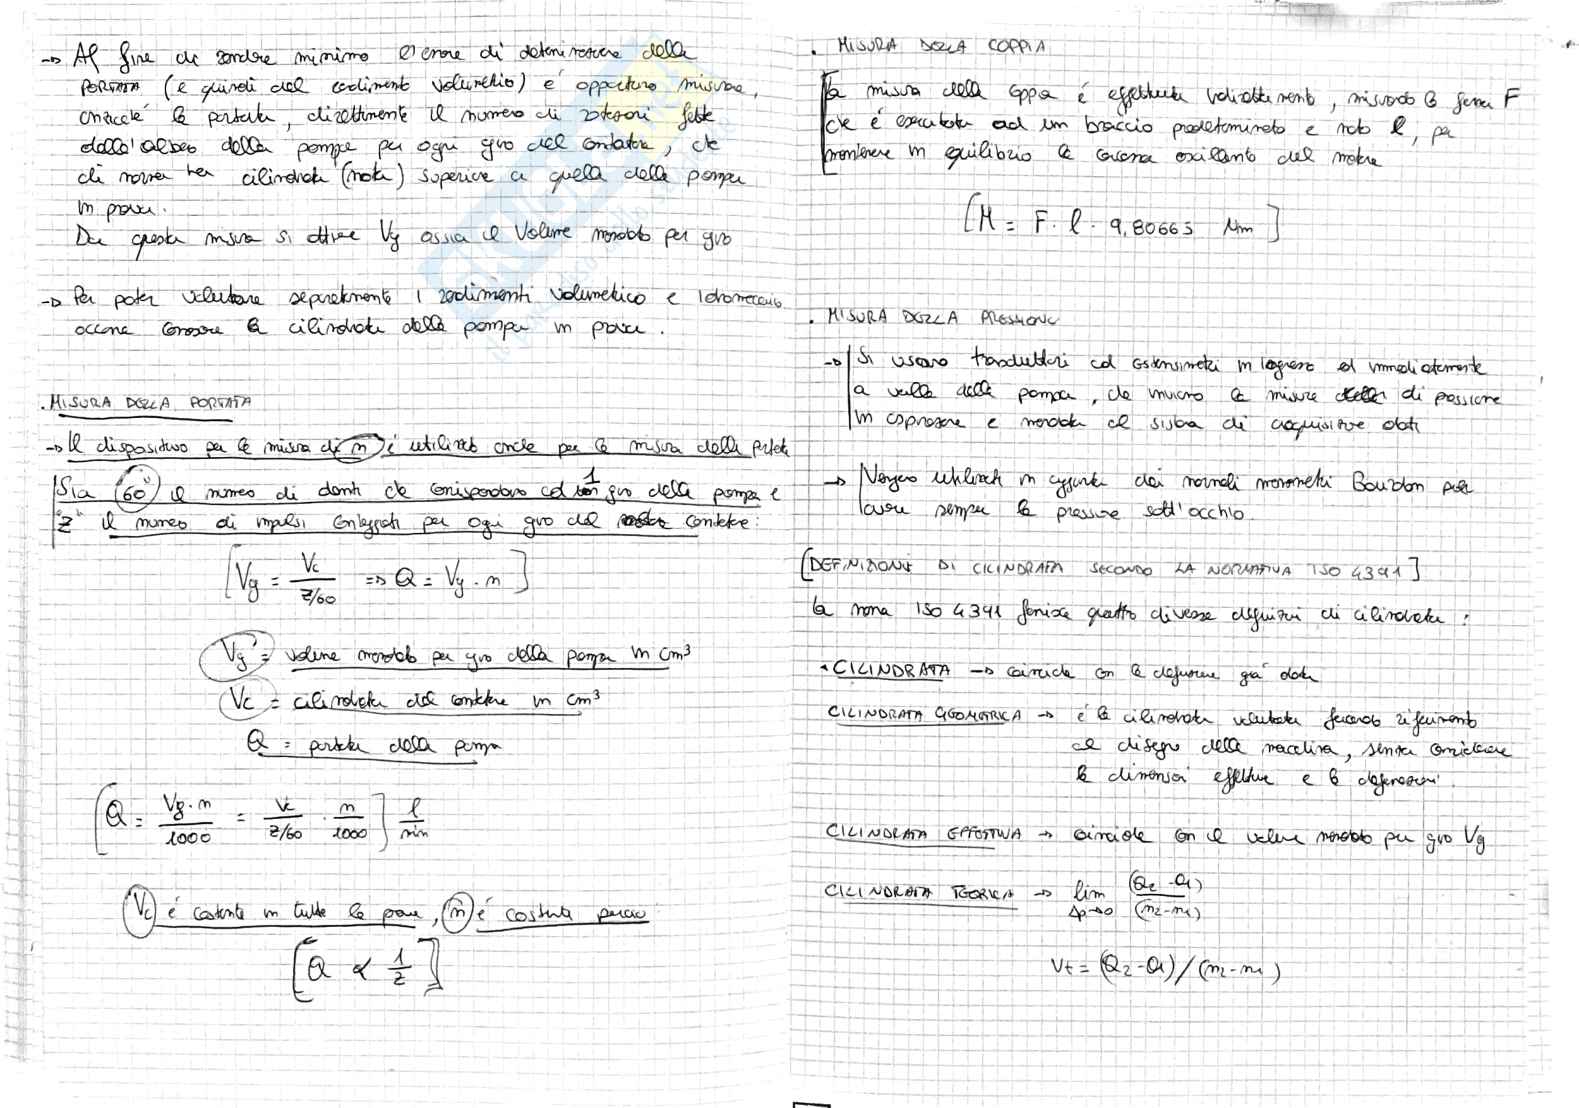 → Al fine di rendere minimo l'errore di determinazione della
PORTATA (e quindi del rendimento volumetrico) è opportuno misurare,
anziché la portata, direttamente il numero di rotazioni fatte
dall'albero della pompa per ogni giro del contatore, che
di norma ha cilindrata (nota) superiore a quella della pompa
in prova.
Da questa misura si ottiene Vg ossia il Volume mandato per giro
→ Per poter valutare separatamente i rendimenti volumetrico e idromeccanico
occorre conoscere la cilindrata della pompa in prova.
. MISURA DELLA PORTATA
→ Il dispositivo per la misura di n è utilizzato anche per la misura della portata
Sia "60" il numero di denti che corrispondono ad 1 giro della pompa e
"Z" il numero di impulsi conteggiati per ogni giro del contatore:
[Vg = Vc / Z/60 => Q = Vg · n]
Vg = volume mandato per giro della pompa in cm³
Vc = cilindrata del contatore in cm³
Q = portata della pompa
[Q = Vg·n / 1000 = Vc / Z/60 · n / 1000] l / min
Vc è costante in tutte le prove, n è costante perciò
[Q ∝ 1/Z]
. MISURA DELLA COPPIA
La misura della coppia è effettuata indirettamente, misurando la forza F
che è esercitata ad un braccio predeterminato e noto l, per
mantenere in equilibrio la carcassa oscillante del motore
[M = F · l · 9,80665 Nm]
. MISURA DELLA PRESSIONE
→ Si usano trasduttori ad estensimetri in ingresso ed immediatamente
a valle della pompa, che inviano la misura di pressione
in aspirazione e mandata al sistema di acquisizione dati
→ Vengono utilizzati in aggiunta dei normali manometri Bourdon per
avere sempre la pressione sott'occhio.
[DEFINIZIONE DI CILINDRATA SECONDO LA NORMATIVA ISO 4391]
la norma ISO 4391 fornisce quattro diverse definizioni di cilindrata:
• CILINDRATA → coincide con la definizione già data
CILINDRATA GEOMETRICA → è la cilindrata valutata facendo riferimento
al disegno della macchina, senza considerare
le dimensioni effettive e le deformazioni.
CILINDRATA EFFETTIVA → coincide con il volume mandato per giro Vg
CILINDRATA TEORICA → lim Δp→0 (Q2-Q1) / (n2-n1)
Vt = (Q2-Q1)/(n2-n1)